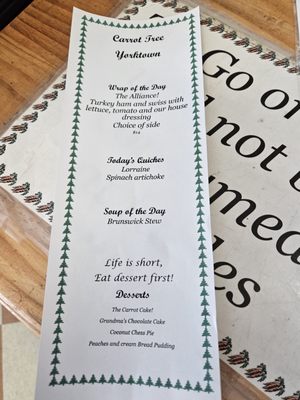 Carrot Tree
Yorktown
Wrap of the Day
The Alliance!
Turkey ham and swiss with
lettuce, tomato and our house
dressing
Choice of side
$14
Today's Quiches
Lorraine
Spinach artichoke
Soup of the Day
Brunswick Stew
Life is short,
Eat dessert first!
Desserts
The Carrot Cake!
Grandma's Chocolate Cake
Coconut Chess Pie
Peaches and cream Bread Pudding
Go
not